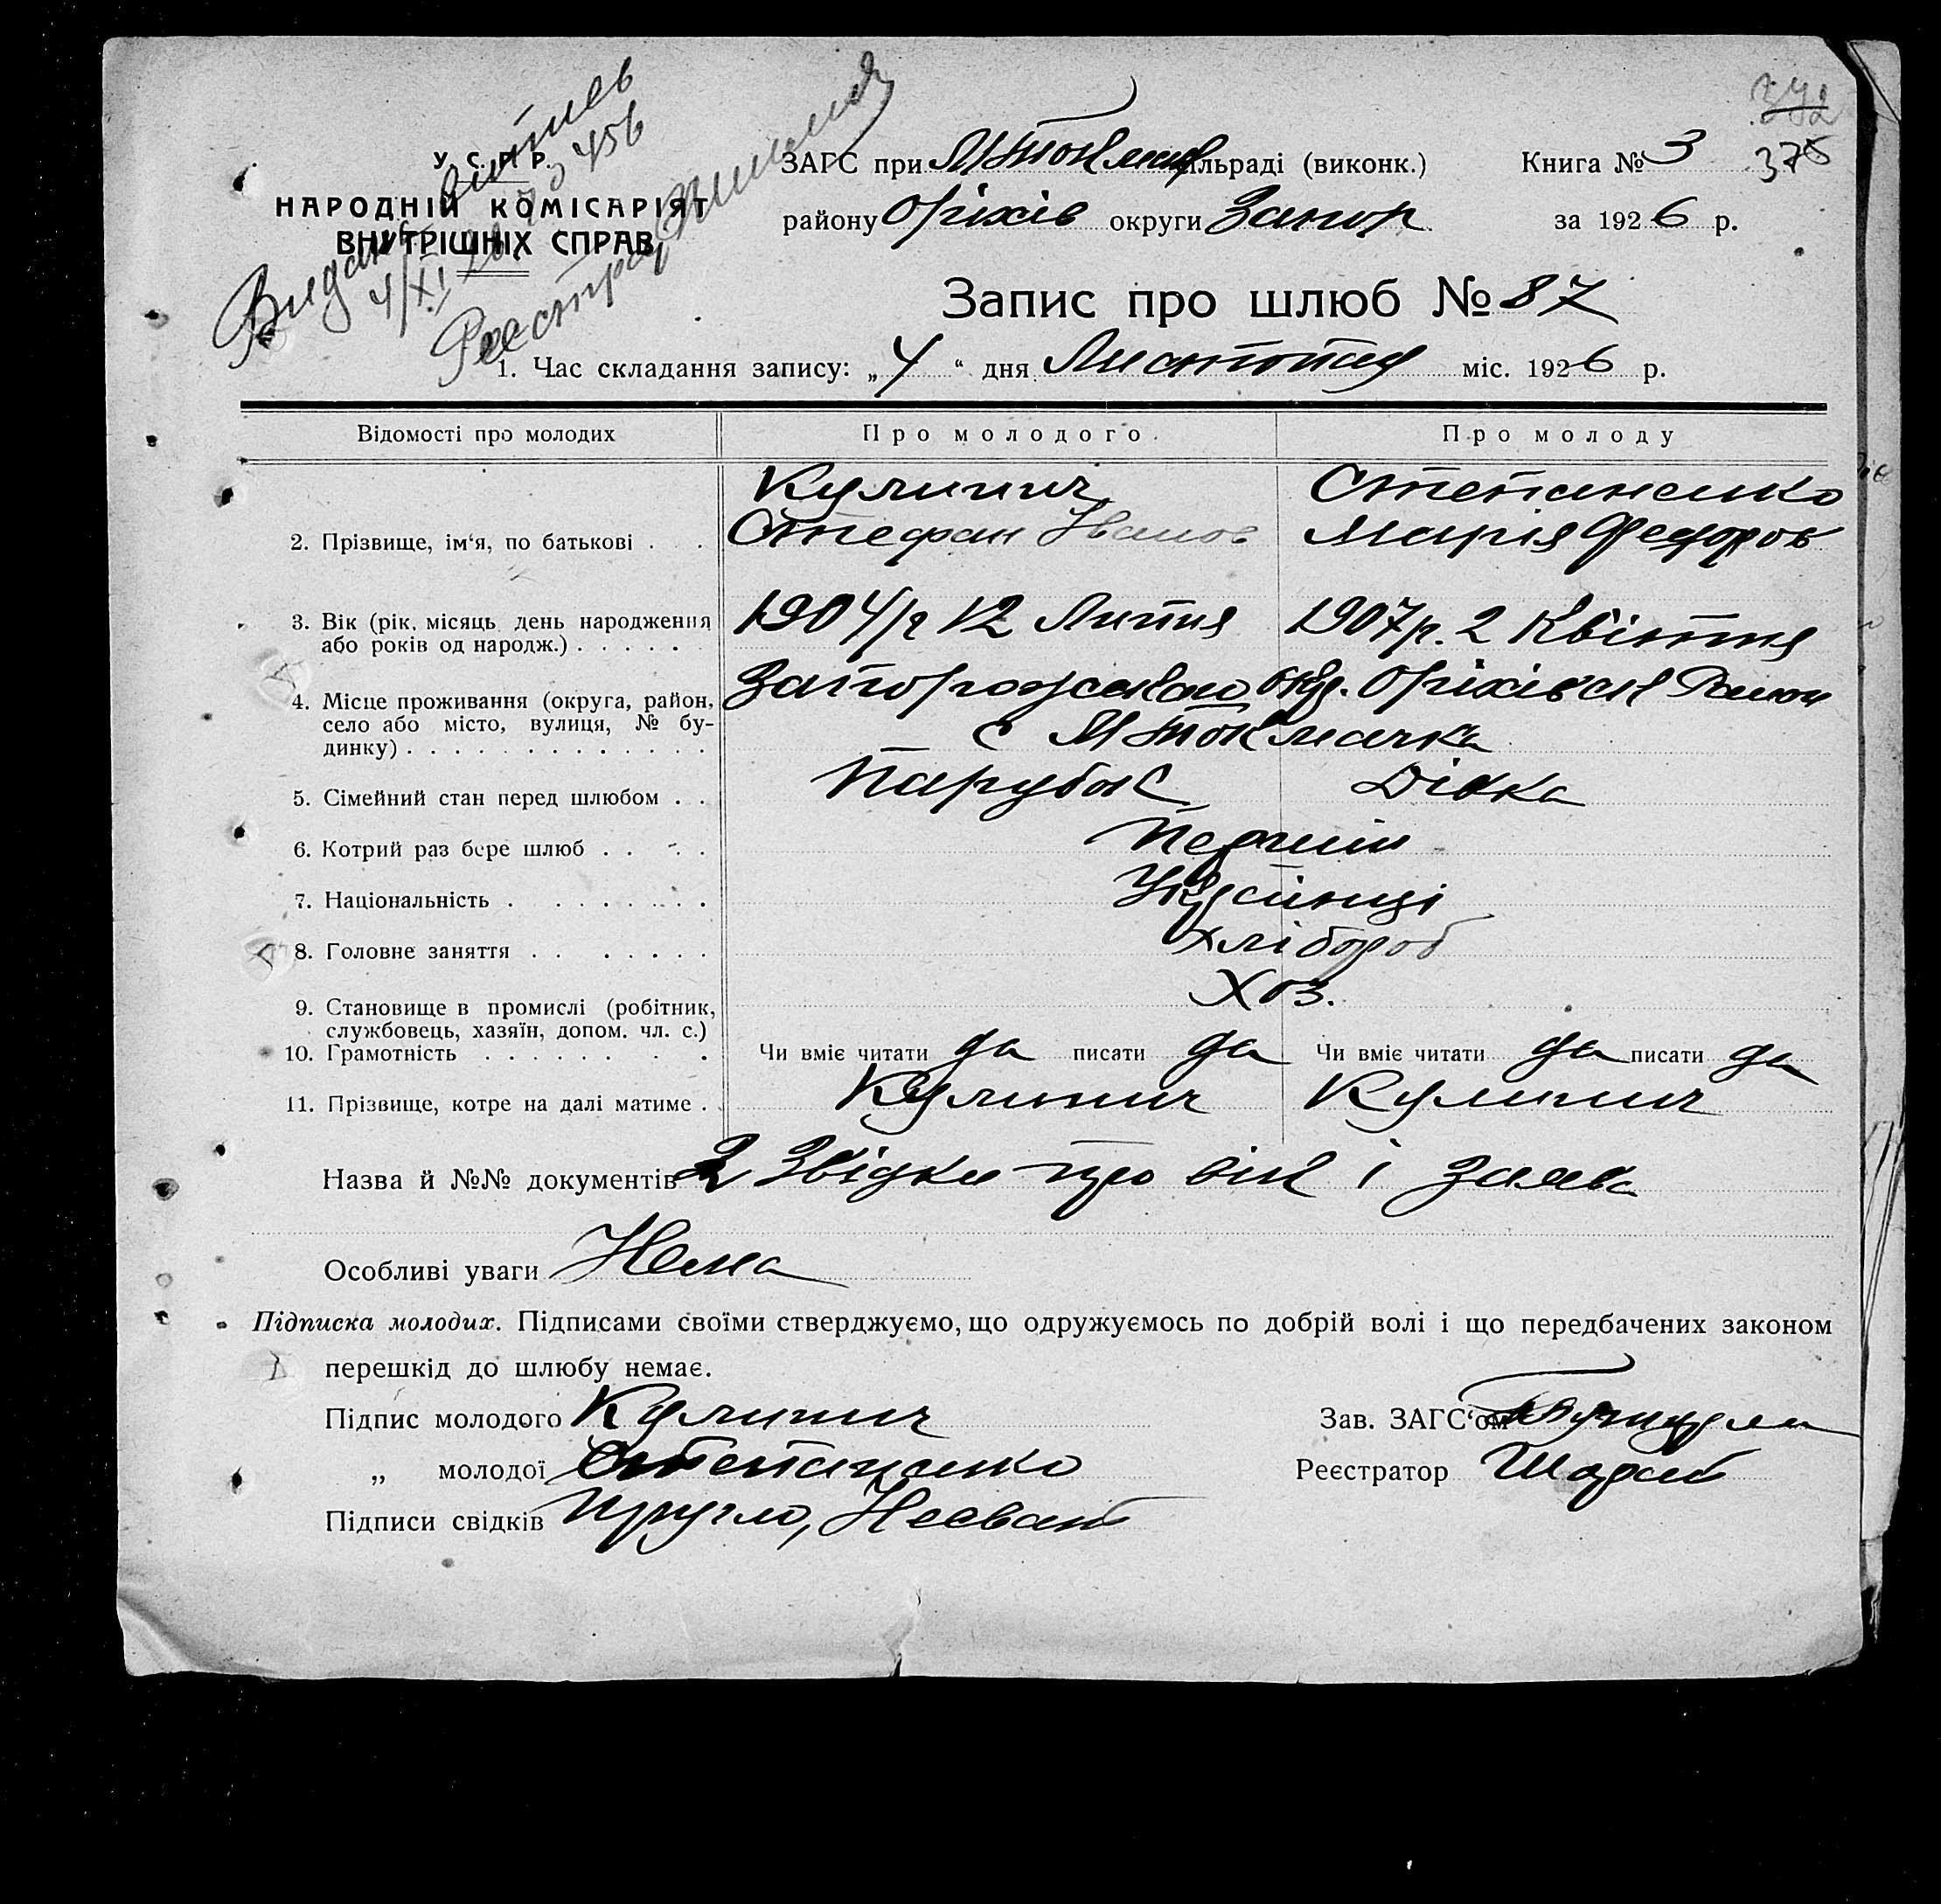 У. С. Р. Р.
НАРОДНІЙ КОМІСАРІЯТ
ВНУТРІШНІХ СПРАВ
Видано витяг
4/XI 26 456
Реєстрац
ЗАГС при М Токмац сільраді (виконк.) Книга № 3
372
375
району Оріхів округи Запор за 1926 р.
Запис про шлюб № 87
1. Час складання запису: „4“ дня Листопад міс. 1926 р.
Відомості про молодих Про молодого. Про молоду
Кулинич Степаненко
2. Прізвище, ім‘я, по батькові . . . Стефан Іванов Марія Федоров
3. Вік (рік, місяць день народження 1904/р 12 Липня 1907 р. 2 Квітня
або років од народж.) . . . . . .
4. Місце проживання (округа, район, Запорожської окр. Оріхівськ Район
село або місто, вулиця, № бу- с М Токмачка
динку) . . . . . . . . . . . . .
5. Сімейний стан перед шлюбом . . Парубок Дівка
6. Котрий раз бере шлюб . . . . Перший
7. Національність . . . . . . . . Українці
8. Головне заняття . . . . . . . хлібороб
9. Становище в промислі (робітник, Хоз.
службовець, хазяїн, допом. чл. с.)
10. Грамотність . . . . . . . . Чи вміє читати да писати да Чи вміє читати да писати да
11. Прізвище, котре на далі матиме . Кулинич Кулинич
Назва й №№ документів 2 Звідки про вік і заява
Особливі уваги Нема
Підписка молодих. Підписами своїми стверджуємо, що одружуємось по добрій волі і що передбачених законом
перешкід до шлюбу немає.
Підпис молодого Кулинич Зав. ЗАГС‘ом
„ молодої Степаненко Реєстратор Шарай
Підписи свідків Кругло, Несват